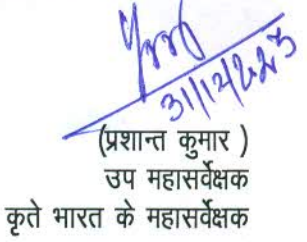 31/12/2023
(प्रशान्त कुमार )
उप महासर्वेक्षक
कृते भारत के महासर्वेक्षक